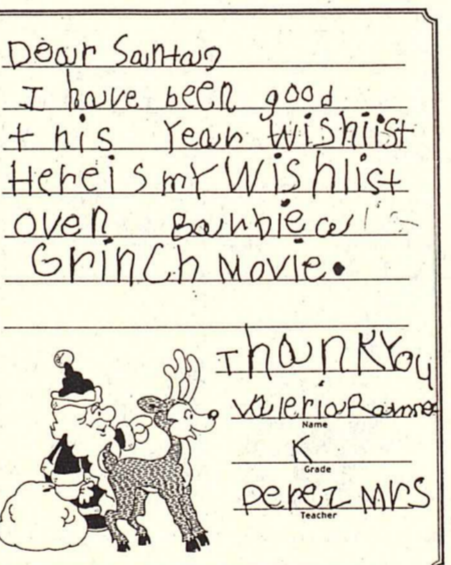 Dear Santa,
I have been good
this Year Wishlist
Here is mY Wishlist
oven Barbie
GrinCh Movie.
ThankYou
Valeria
Name
K
Grade
Perez MRS
Teacher